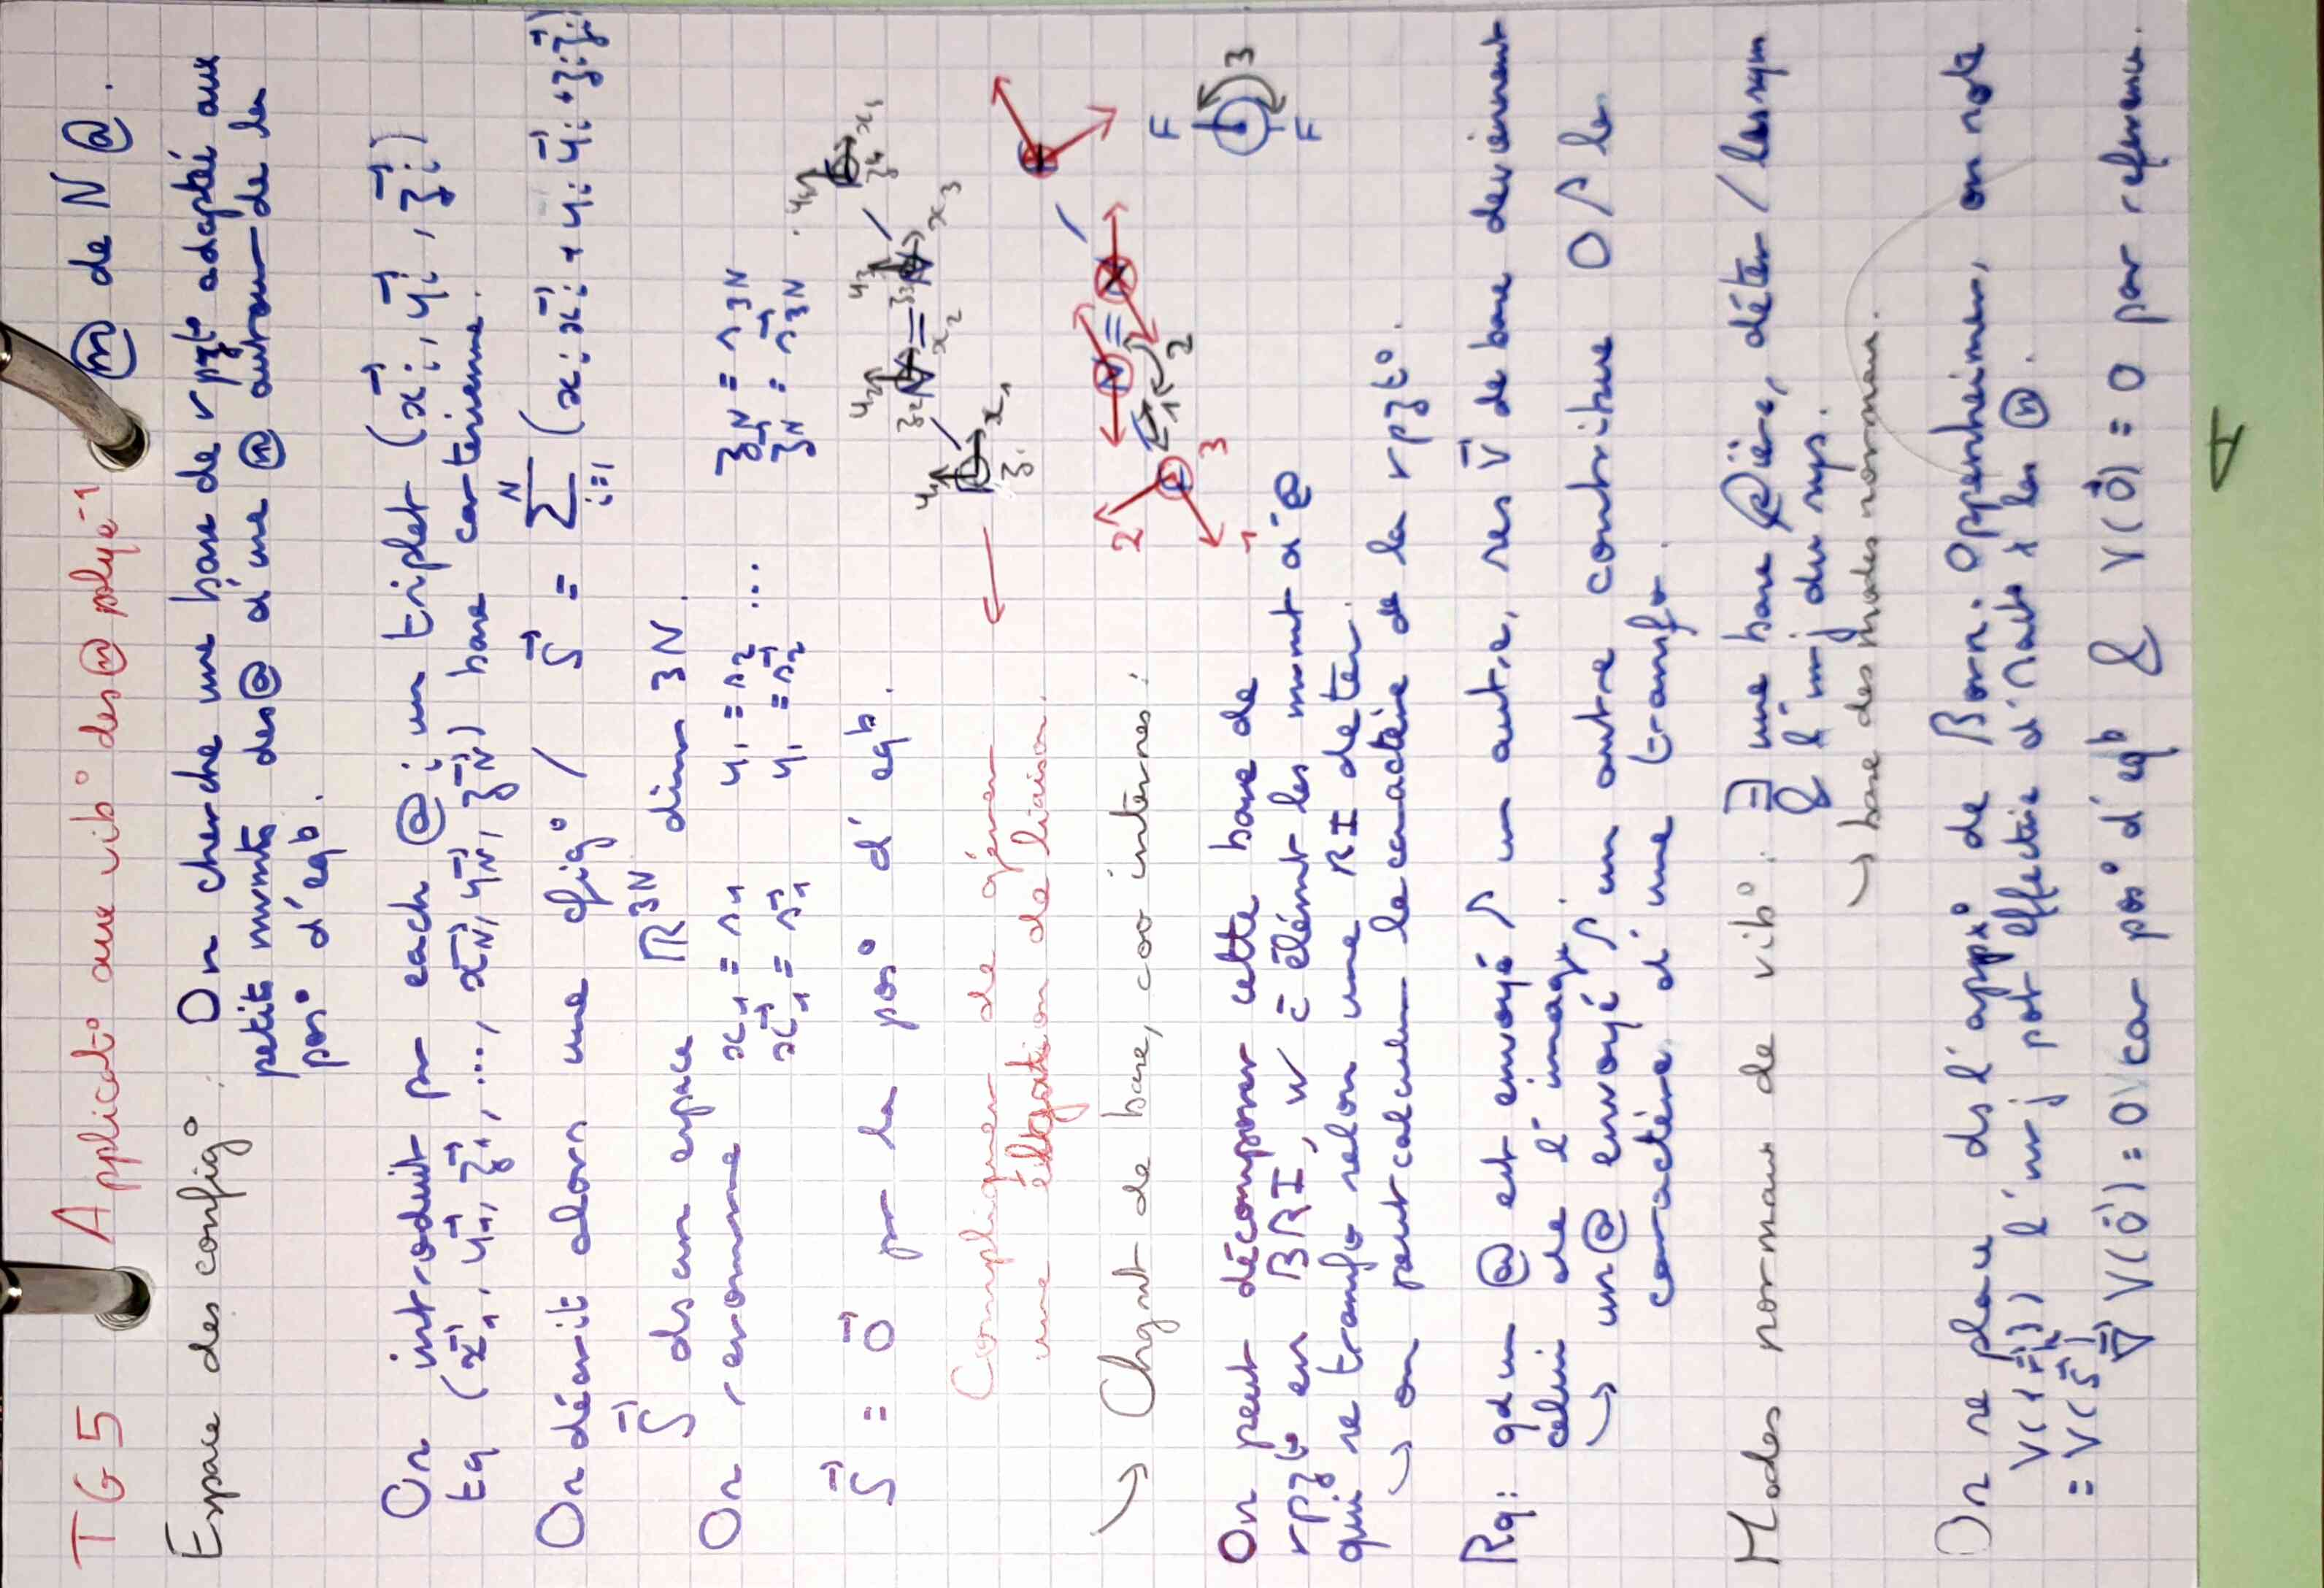 TG5 Applicat° aux vib° des ⓜ polye⁻¹
ⓜ de N @.
Espace des config° : On cherche une base de rpzt° adaptée aux
petits mvmts des @ d'une ⓜ autour de la
pos° d'eqb.
On introduit pr each @ i un triplet (x⃗i, y⃗i, z⃗i)
tq (x⃗1, y⃗1, z⃗1, ..., x⃗N, y⃗N, z⃗N) base cartésienne.
On décrit alors une cfig° / S⃗ = Σ_{i=1}^{N} (xi x⃗i + yi y⃗i + zi z⃗i)
S⃗ ds un espace ℝ^{3N} dim 3N.
On renomme x1 = s1 y1 = s2 ... zN = s3N
x⃗1 = s⃗1 y⃗1 = s⃗2 z⃗N = s⃗3N.
S⃗ = 0⃗ pr la pos° d'eqb.
y1 x1 z1 y2 x2 z2 N = N y3 x3 z3 y4 x1 z4
Compliquer de gérer
une élongation de liaison.
↳ Chgmt de base, coo internes :
2 3 1 1 2 N = N
F F 3
On peut décomposer cette base de
rpzt° en BRI, w c̄ élémt les mvmt d'@
qui se transfo selon une RI deter.
↳ on peut calculer le caractère de la rpzt°.
Rq : qd un @ est envoyé s/ un autre, ses v⃗ de base deviennent
celui de l'image.
↳ un @ envoyé s/ un autre contribue 0 s/ le
caractère d'une transfo.
Modes normaux de vib° : ∃ une base @ière, déter / les sym
& l'nrj du sys.
↳ base des modes normaux.
On se place ds l'appx° de Born-Oppenheimer, on note
V({r⃗k}) l'nrj pot effective d'∩ab° * les ⓝ.
= V(S⃗)
∇⃗V(0⃗) = 0⃗ car pos° d'eqb & V(0⃗) = 0 par reference.
A